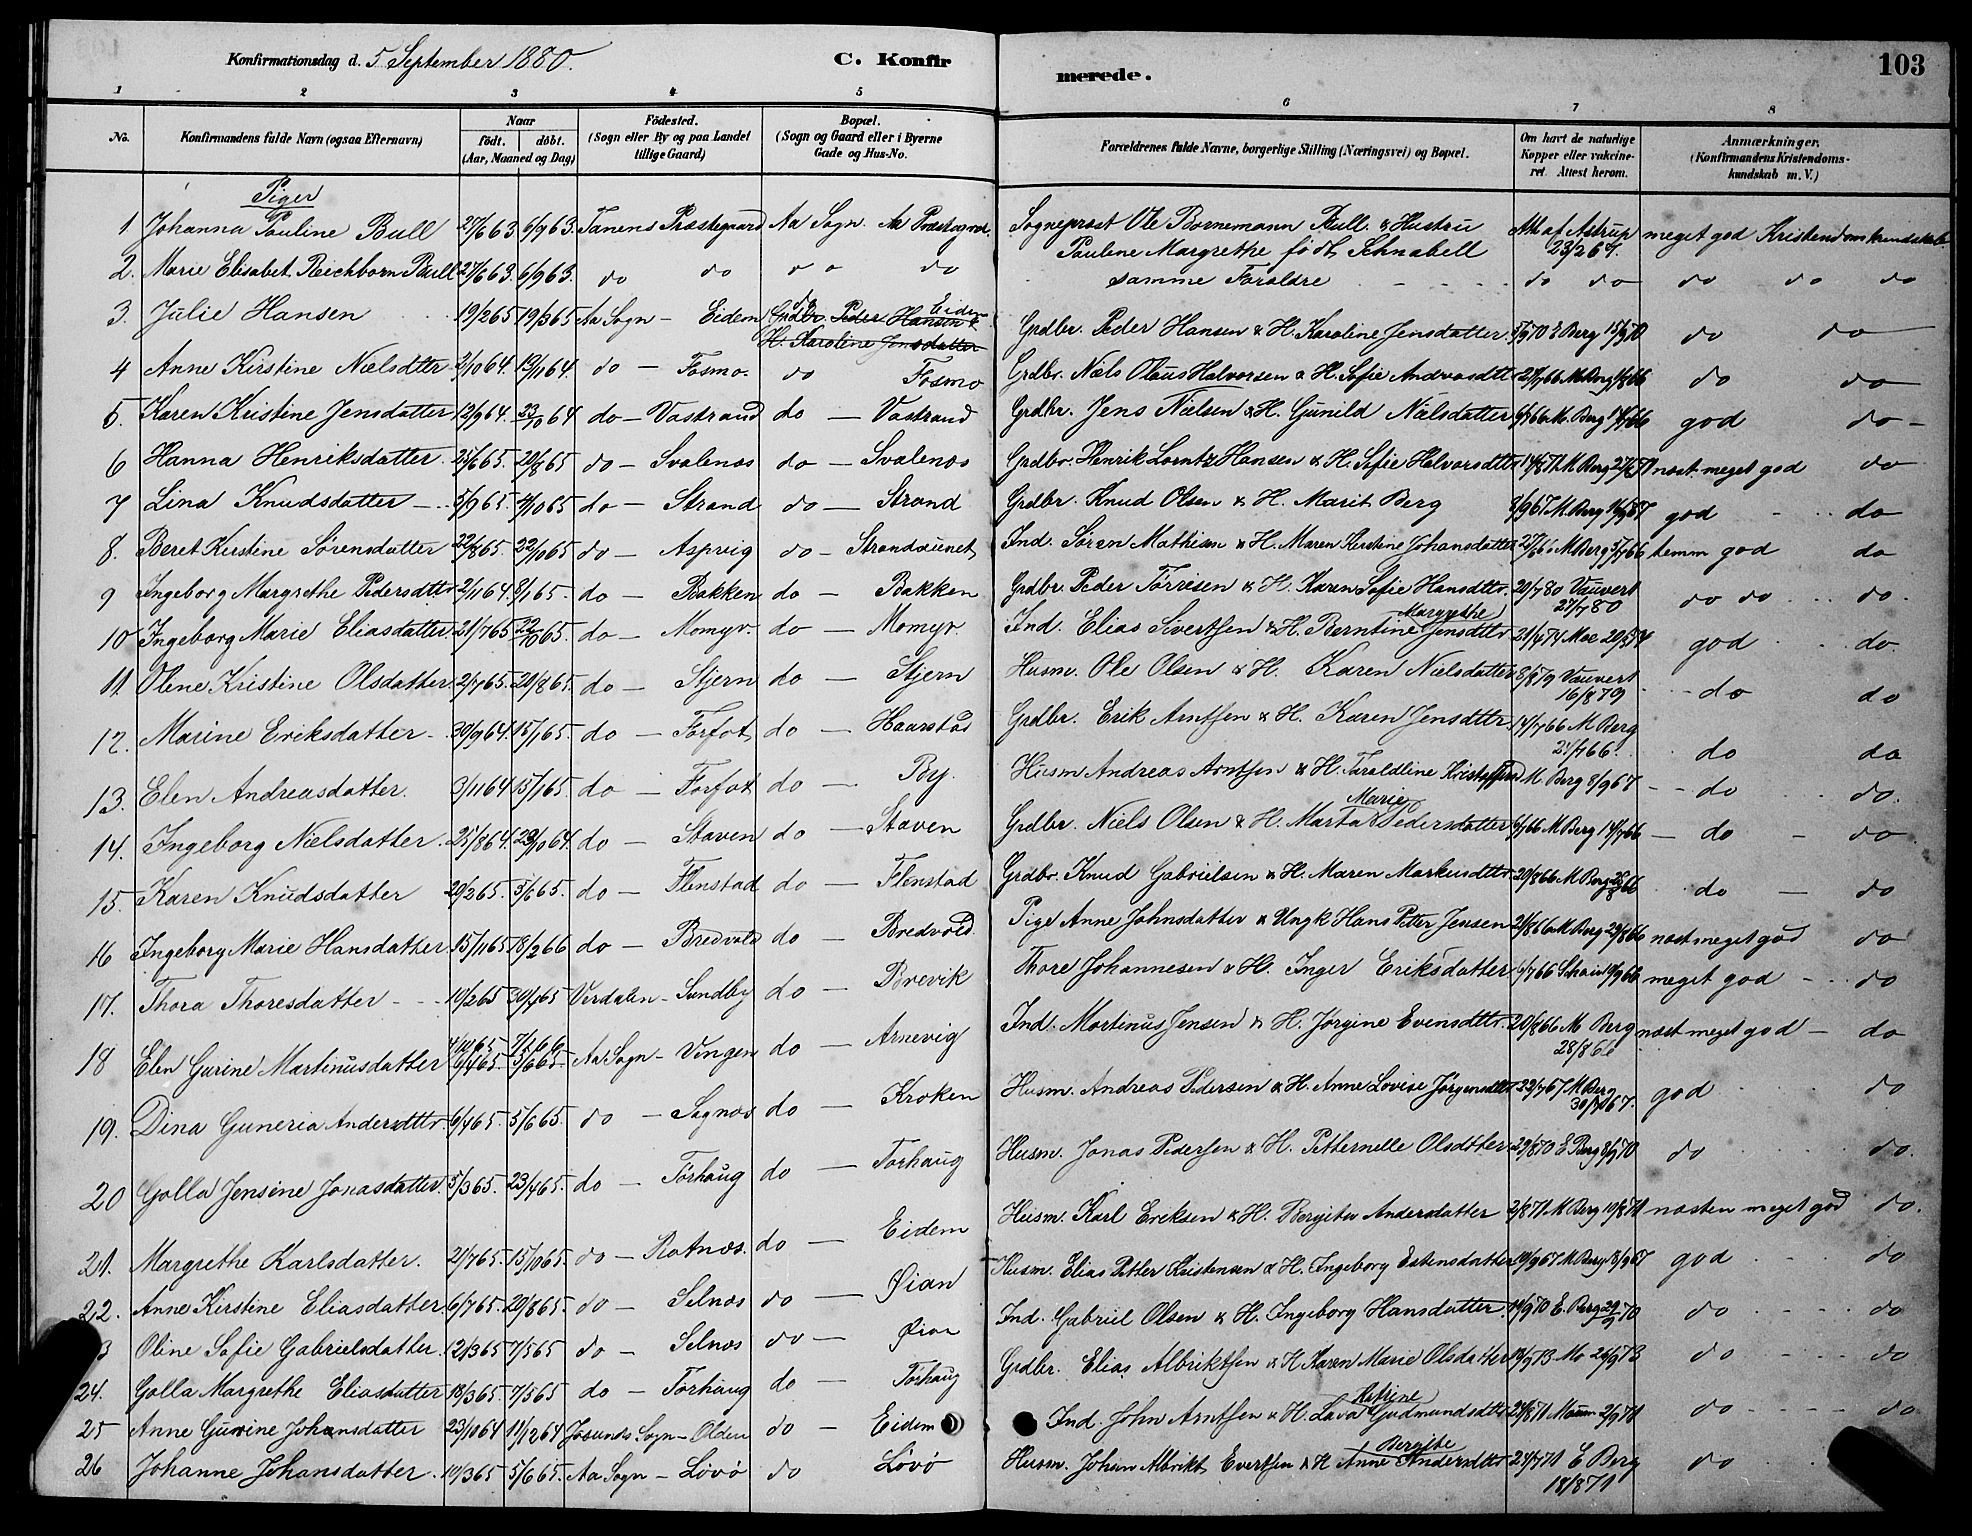 103
Konfirmationsdag d. 5 September 1880.
C. Konfirmerede.
1 2 3 4 5 6 7 8
No.
Konfirmandens fulde Navn (ogsaa Efternavn)
Naar
født. døbt.
(Aar, Maaned og Dag)
Fødested.
(Sogn eller By og paa Landet
tillige Gaard)
Bopæl.
(Sogn og Gaard eller i Byerne
Gade og Hus-No.
Forældrenes fulde Navne, borgerlige Stilling (Næringsvei) og Bopæl.
Om havt de naturlige
Kopper eller vakcine-
ret Attest herom.
Anmærkninger.
(Konfirmandens Kristendoms-
kundskab m. V.)
Piger
1. Johanna Pauline Bull 27/6 63 6/9 63. Tanens Præstegaard Aa Sogn. Aa Præstegrd. Sognepræst Ole Bornemann Bull & Hustru Att. af Astrup meget god Kristendomskundskab
Pauline Margrethe født Schnabell 23/2 64.
2. Marie Elisabet Reichborn Bull 27/6 63 6/9 63. do do do do samme Forældre do do do do do
3. Julie Hansen 19/2 65 19/3 65 Aa Sogn – Eidem do Eidem Grdbr. Peder Hansen & H. Karoline Jensdatter 5/9 70 E Berg 15/9 70 do do
Grdbr. Peder Hansen &
H. Karoline Jensdatter
4 Anne Kirstine Nielsdtter 2/10 64. 13/11 64. do – Fosmo. do Fosmo Grdbr. Niels Olaus Halvorsen & H. Sofie Andreasdtter M. Berg do do
5. Karen Kristine Jensdatter 12/9 64. 23/10 64 do – Vastrand do – Vastrand Grdbr. Jens Nielsen & H. Gunild Nielsdatter M. Berg god do –
6 Hanna Henriksdatter 25/6 65. 20/8 65 do – Svalenæs do – Svalenæs Grdbr. Henrik Lorntz Hansen & H. Sofie Halvorsdtter M Berg næst meget god do
7 Lina Knudsdatter 5/9 65. 4/10 65 do – Strand do – Strand Grdbr. Knud Olsen & H. Marit Berg M. Berg god do
8. Beret Kirstine Sørensdatter 22/8 65. 22/10 65 do – Aspvig do – Strandaunet Ind. Søren Mathisen & H. Maren Kirstine Johansdatter M Berg temm god do
9 Ingeborg Margrethe Pedersdtter 2/11 64. 8/1 65. do – Bakken do – Bakken Grdbr. Peder Torresen & H. Karen Sofie Hansdtter. 20/7 80 Vauvert do do do.
27/7 80
10 Ingeborg Marie Eliasdatter 21/7 65. 22/10 65. do – Momyr. do – Momyr. Ind. Elias Sivertsen & H. Berntine Margrethe Jensdtter god do
11 Oline Kristine Olsdatter 2/7 65. 20/8 65. do – Stjern do – Stjern Husm. Ole Olsen & H. Karen Nielsdatter 8/8 79 Vauvert do do
16/8 79
12. Marine Eriksdatter 30/9 64. 15/1 65. do – Forfot do – Haarstad Grdbr. Erik Arntsen & H. Karen Jensdtter 14/7 66 M Berg do do
21/7 66.
13. Elen Andreasdatter. 3/11 64 15/1 65. do – Forfot do – By. Husm Andreas Arntsen & H. Taraldline M. Berg 8/9 67 do do.
14. Ingeborg Nielsdatter 25/8 64. 23/10 64. do – Staven do – Staven Grdbr. Niels Olsen & H. Marta Marie Pedersdatter 6/7 66 M Berg 14/7 66 – do – do
15. Karen Knudsdatter 20/3 65. 5/6 65. do – Flenstad do – Flenstad Grdbr. Knud Gabrielsen & H. Maren Markusdtter 20/8 66 M Berg do – do
16 Ingeborg Marie Hansdatter 15/11 65 18/2 66 do – Bredvold do – Bredvold Pige Anne Johnsdatter & Ungk Hans Petter Jensen M Berg næst meget god do
17. Thora Thoresdatter 10/2 65 30/4 65 Verdalen – Sundby do – Brevik Thore Johannesen & H. Inger Eriksdatter meget god do
18 Elen Gurine Martinusdatter Aa Sogn – Vingen do – Arnevig Ind. Martinus Jensen & H. Jørgine Evensdtter. 20/8 66 M Berg næst meget god – do
28/8 66
19. Dina Guneria Andersdtter 6/4 65. 5/6 65. do – Sagnæs do – Kroken Husm. Andreas Pedersen & H. Anne Lovise Jørgensdtter 22/7 67 M Berg god do
30/7 67.
20 Golla Jensine Jonasdatter. 5/3 65. 23/4 65. do – Torhaug do – Torhaug Husm. Jonas Pedersen & H. Petternelle Olsdatter 29/8 70 E Berg 8/9 70 do do.
21. Margrethe Karlsdatter. 21/7 65. 15/10 65. do – Ratnæs. do – Eidem Husm. Karl Eriksen & H. Bergitta Andersdatter 2/8 71 M Berg 10/8 71 næsten meget god do.
22. Anne Kirstine Eliasdatter 6/7 65. 20/8 65. do – Selnæs do – Øian Husm. Elias Petter Kristensen & H. Ingeborg Estensdatter 10/9 67 M Berg 18/9 67 god do
3 Oline Sofie Gabrielsdatter. 12/3 65 7/5 65 do – Selnæs do – Øian Ind. Gabriel Olsen & H. Ingeborg Hansdatter E. Berg do do
24. Golla Margrethe Eliasdatter 18/3 65. 7/5 65 do – Torhaug do – Torhaug Grdbr. Elias Albriktsen & H. Karen Marie Olsdatter do do
25 Anne Gurine Johansdatter 23/10 64 11/12 64 Jøsunds Sogn – Olden do – Eidem Ind. John Arntsen & H. Lava Katrine Gudmundsdtr do do.
26 Johanne Johansdatter. 10/3 65 5/6 65. Aa Sogn – Løvø do Løvø Husm. Johan Albrikt Evertsen & H Anne Bergithe Andersdtter 24/7 71 E Berg do
18/8 71